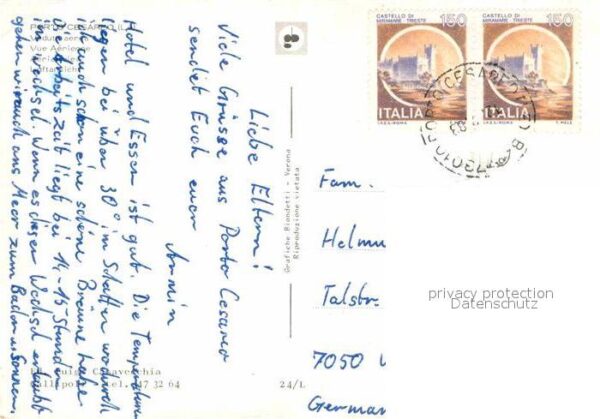 PORTO CESAREO (L
Veduta aerea
Vue Aérienne
Luftansicht
Liebe Eltern!
Viele Grüsse aus Porto Cesareo
sendet Euch euer
Armin
Hotel und Essen ist gut. Die Temperaturen
liegen bei über 30° im Schatten wodurch
ich auch schon eine schöne Bräune habe.
Die Arbeitszeit liegt bei 14-15 Stunden
im Wechsel. Wenn es dieser Wechsel erlaubt
gehen wir auch ans Meer zum Baden u. Sonnen
Gallipoli Tel. 47 32 64
24/L
Grafiche Biondetti - Verona
Riproduzione vietata
CASTELLO DI MIRAMARE TRIESTE 150
ITALIA
I.P.Z.S.-ROMA
CASTELLO DI MIRAMARE TRIESTE 150
ITALIA
I.P.Z.S.-ROMA
73010 PORTO CESAREO
Fam.
Helmu
Talstr
7050
German
privacy protection
Datenschutz